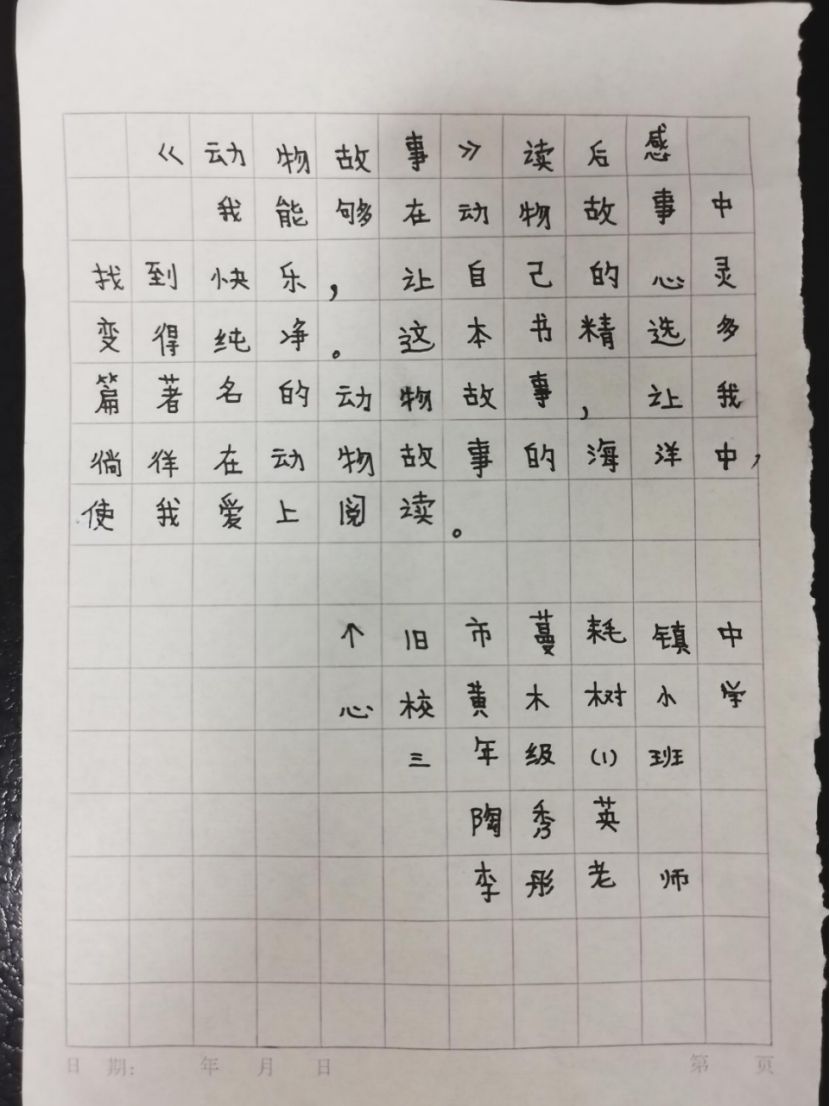 《动物故事》读后感
我能够在动物故事中
找到快乐，让自己的心灵
变得纯净。这本书精选多
篇著名的动物故事，让我
徜徉在动物故事的海洋中，
使我爱上阅读。
个旧市蔓耗镇中
心校黄木树小学
三年级(1)班
陶秀英
李彤老师
日期： 年 月 日 第 页